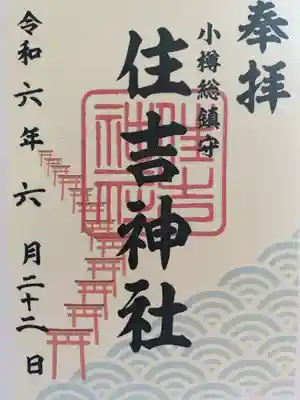 奉拝
小樽総鎮守
住吉神社
令和六年六月二十二日
住吉神社